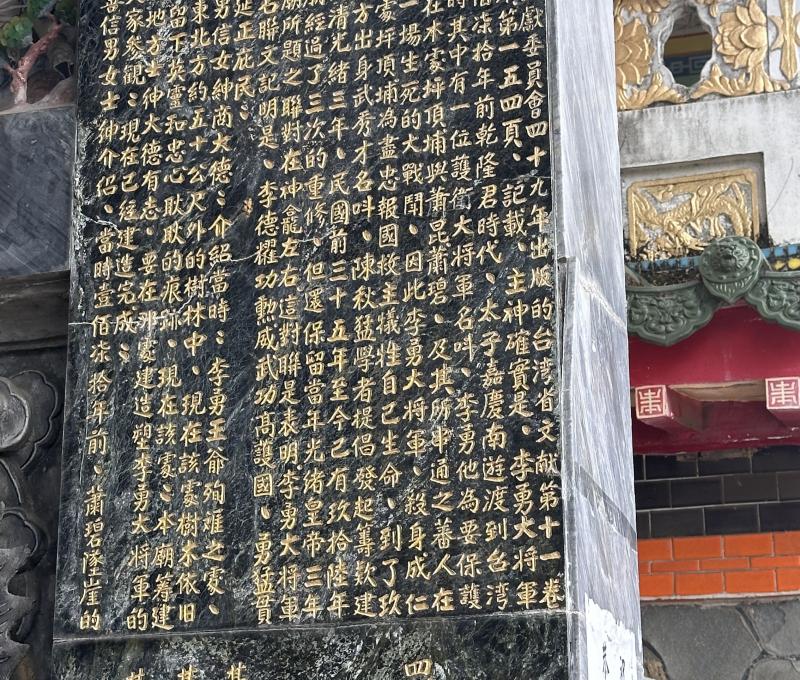 獻委員會四十九年出版的台湾省文献第十一卷
第一五四頁、記載、主神確實是、李勇大將軍
佰柒拾年前乾隆君時代、太子嘉慶南遊渡到台湾
時其中有一位護衛大將軍名叫、李勇他為要保護
在木寮坪頂埔與蕭昆蕭碧、及其所串通之蕃人在
一場生死的大戰鬪、因此李勇大將軍、殺身成仁
寮坪頂埔為盡忠報國救主犧性自己生命、到了玖
方出身武秀才名叫、陳秋猛學者提倡發起籌欵建
清光緒三年、民國前三十五年至今已有玖拾陸年
經過了三次的重修、但還保留當年光緒皇帝三年
廟所題之聯對在神龕左右這對聯是表明李勇大將軍
名聯文記明是、李德耀功勲威武功高護國、勇猛貫
延正庇民:
男信女紳商大德:介紹當時:李勇王爺殉难之處、
東北方約五十公尺外的樹林中、現在該處樹木依旧
留下英靈和忠心耿耿的痕跡、現在該處:本廟籌建
地方士紳大德有志、要在那處建造塑李勇大將軍的
大家參觀:現在已經建造完成:
善信男女士紳介绍、當時壹佰柒拾年前、蕭碧隊崖的
四
其
其
其